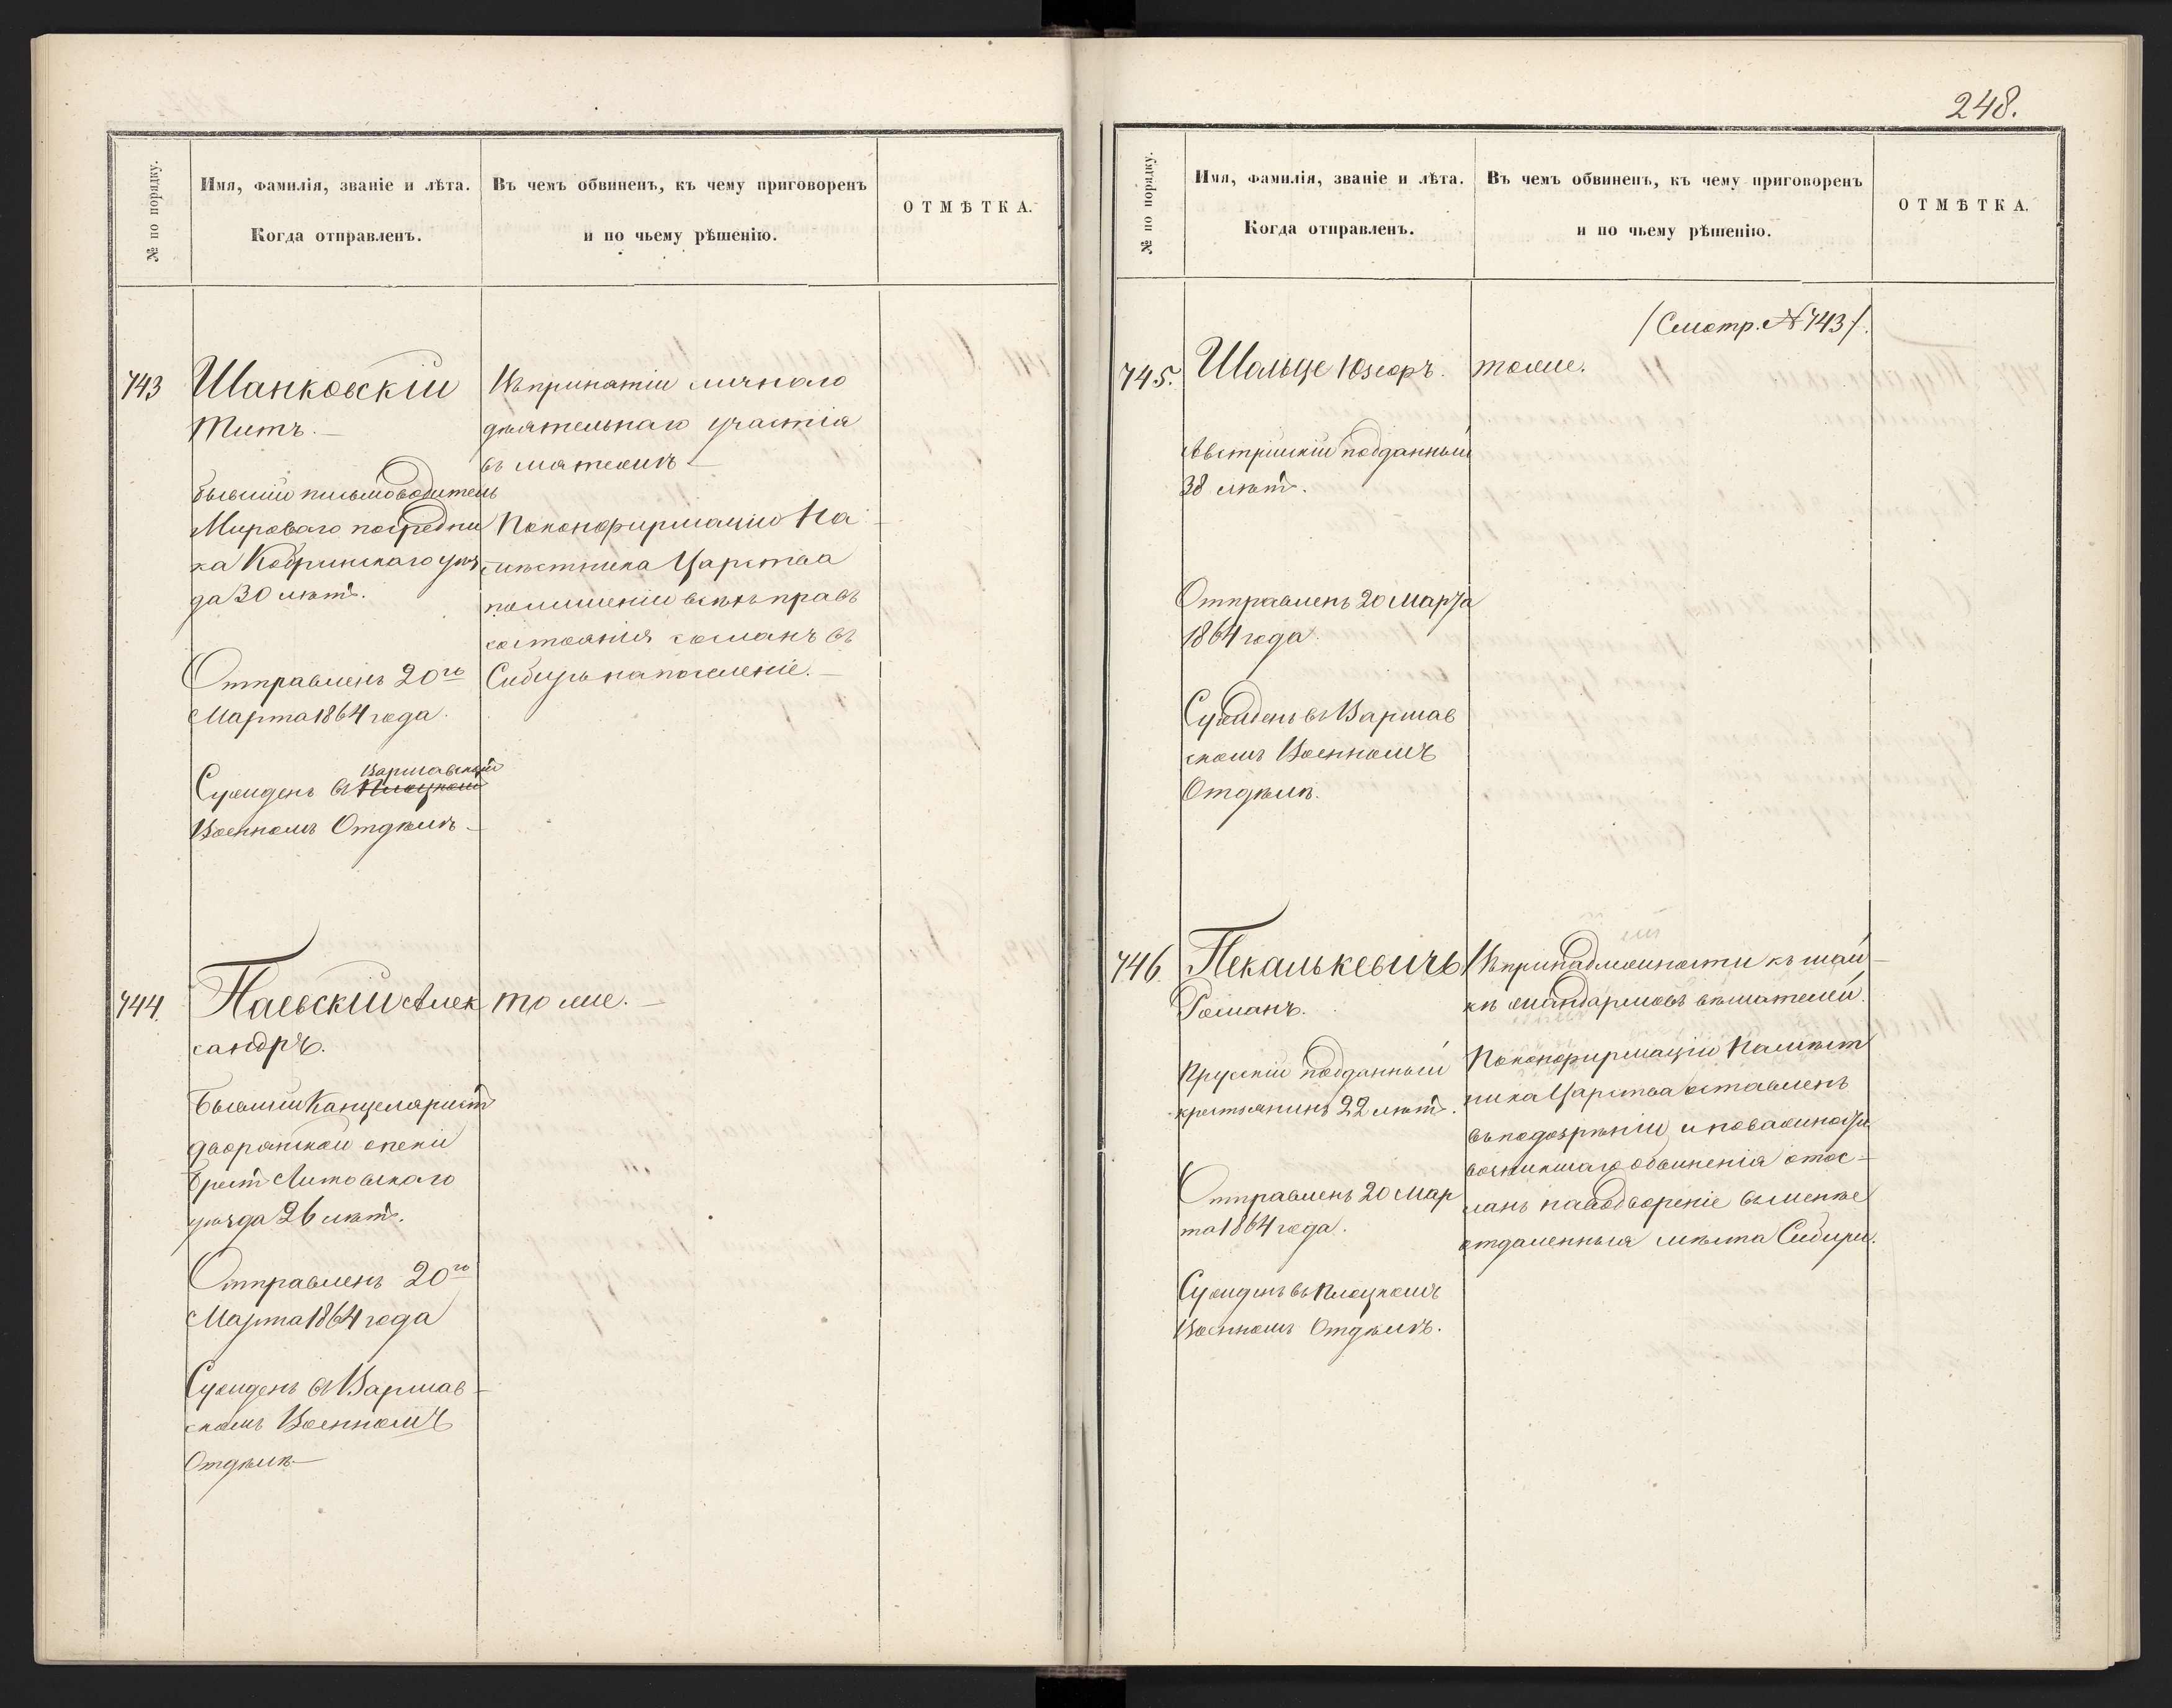 № по порядку.
Имя, фамилія, званіе и лѣта.
Когда отправленъ.
Въ чемъ обвиненъ, къ чему приговоренъ
и по чьему рѣшенію.
ОТМѢТКА.
743
Шанковскій
Титъ. —
бывшій письмоводитель
Мироваго посредни
ка Кобринскаго уѣз
да 30 лѣтъ.
Отправленъ 20го
Марта 1864 года.
Варшавскомъ
Сужденъ въ Плоцкомъ
Военномъ Отдѣлѣ —
Въ принятіи личнаго
дѣятельнаго участія
въ мятежѣ —
По конфирмаціи На
мѣстника Царства
по лишеніи всѣхъ правъ
состоянія сосланъ въ
Сибирь на поселеніе. —
744.
Паевскій Алек
сандръ.
Бывшій Канцеляристъ
дворянской опеки
Брестъ Литовскаго
уѣзда 26 лѣтъ.
Отправленъ 20го
Марта 1864 года
Сужденъ въ Варшав-
скомъ Военномъ
Отдѣлѣ —
тоже. —
248.
№ по порядку.
Имя, фамилія, званіе и лѣта.
Когда отправленъ.
Въ чемъ обвиненъ, къ чему приговоренъ
и по чьему рѣшенію.
ОТМѢТКА.
/Смотр. № 743/.
745.
Шольце Юзефъ.
Австрійскій подданный
38 лѣтъ.
Отправленъ 20 Марта
1864 года.
Сужденъ въ Варшав
скомъ Военномъ
Отдѣлѣ.
тоже.
746
Пекалькевичъ
Романъ.
Прускій подданный
крестьянинъ 22 лѣтъ.
Отправленъ 20 Мар
та 1864 года.
Сужденъ въ Плоцкомъ
Военномъ Отдѣлѣ.
Въ принадлежности къ шай-
кѣ жандармовъ вѣшателей.
По конфирмаціи Намѣст
ника Царства оставленъ
въ подозрѣніи, и по важности
возникшаго обвиненія отос-
ланъ на водвореніе въ менѣе
отдаленныя мѣста Сибири.